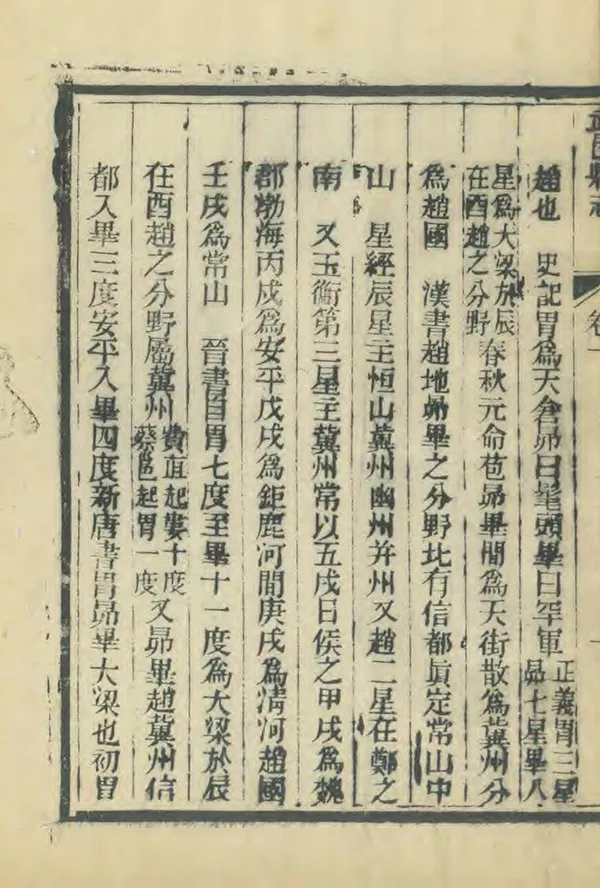 武邑縣志
卷一
一
趙也　史記胃爲天倉昴曰髦頭畢曰罕軍正義胃三星昴七星畢八
星爲大梁於辰在酉趙之分野　春秋元命苞昴畢間爲天街散爲冀州分
爲趙國　漢書趙地昴畢之分野北有信都眞定常山中
山　星經辰星主恒山冀州幽州并州又趙二星在鄭之
南　又玉衡第三星主冀州常以五戌日候之甲戌爲魏
郡勃海丙戌爲安平戊戌爲鉅鹿河間庚戌爲淸河趙國
壬戌爲常山　晉書自胃七度至畢十一度爲大梁於辰
在酉趙之分野屬冀州費直起婁十度蔡邕起胃一度又昴畢趙冀州信
都入畢三度安平入畢四度新唐書胃昴畢大梁也初胃